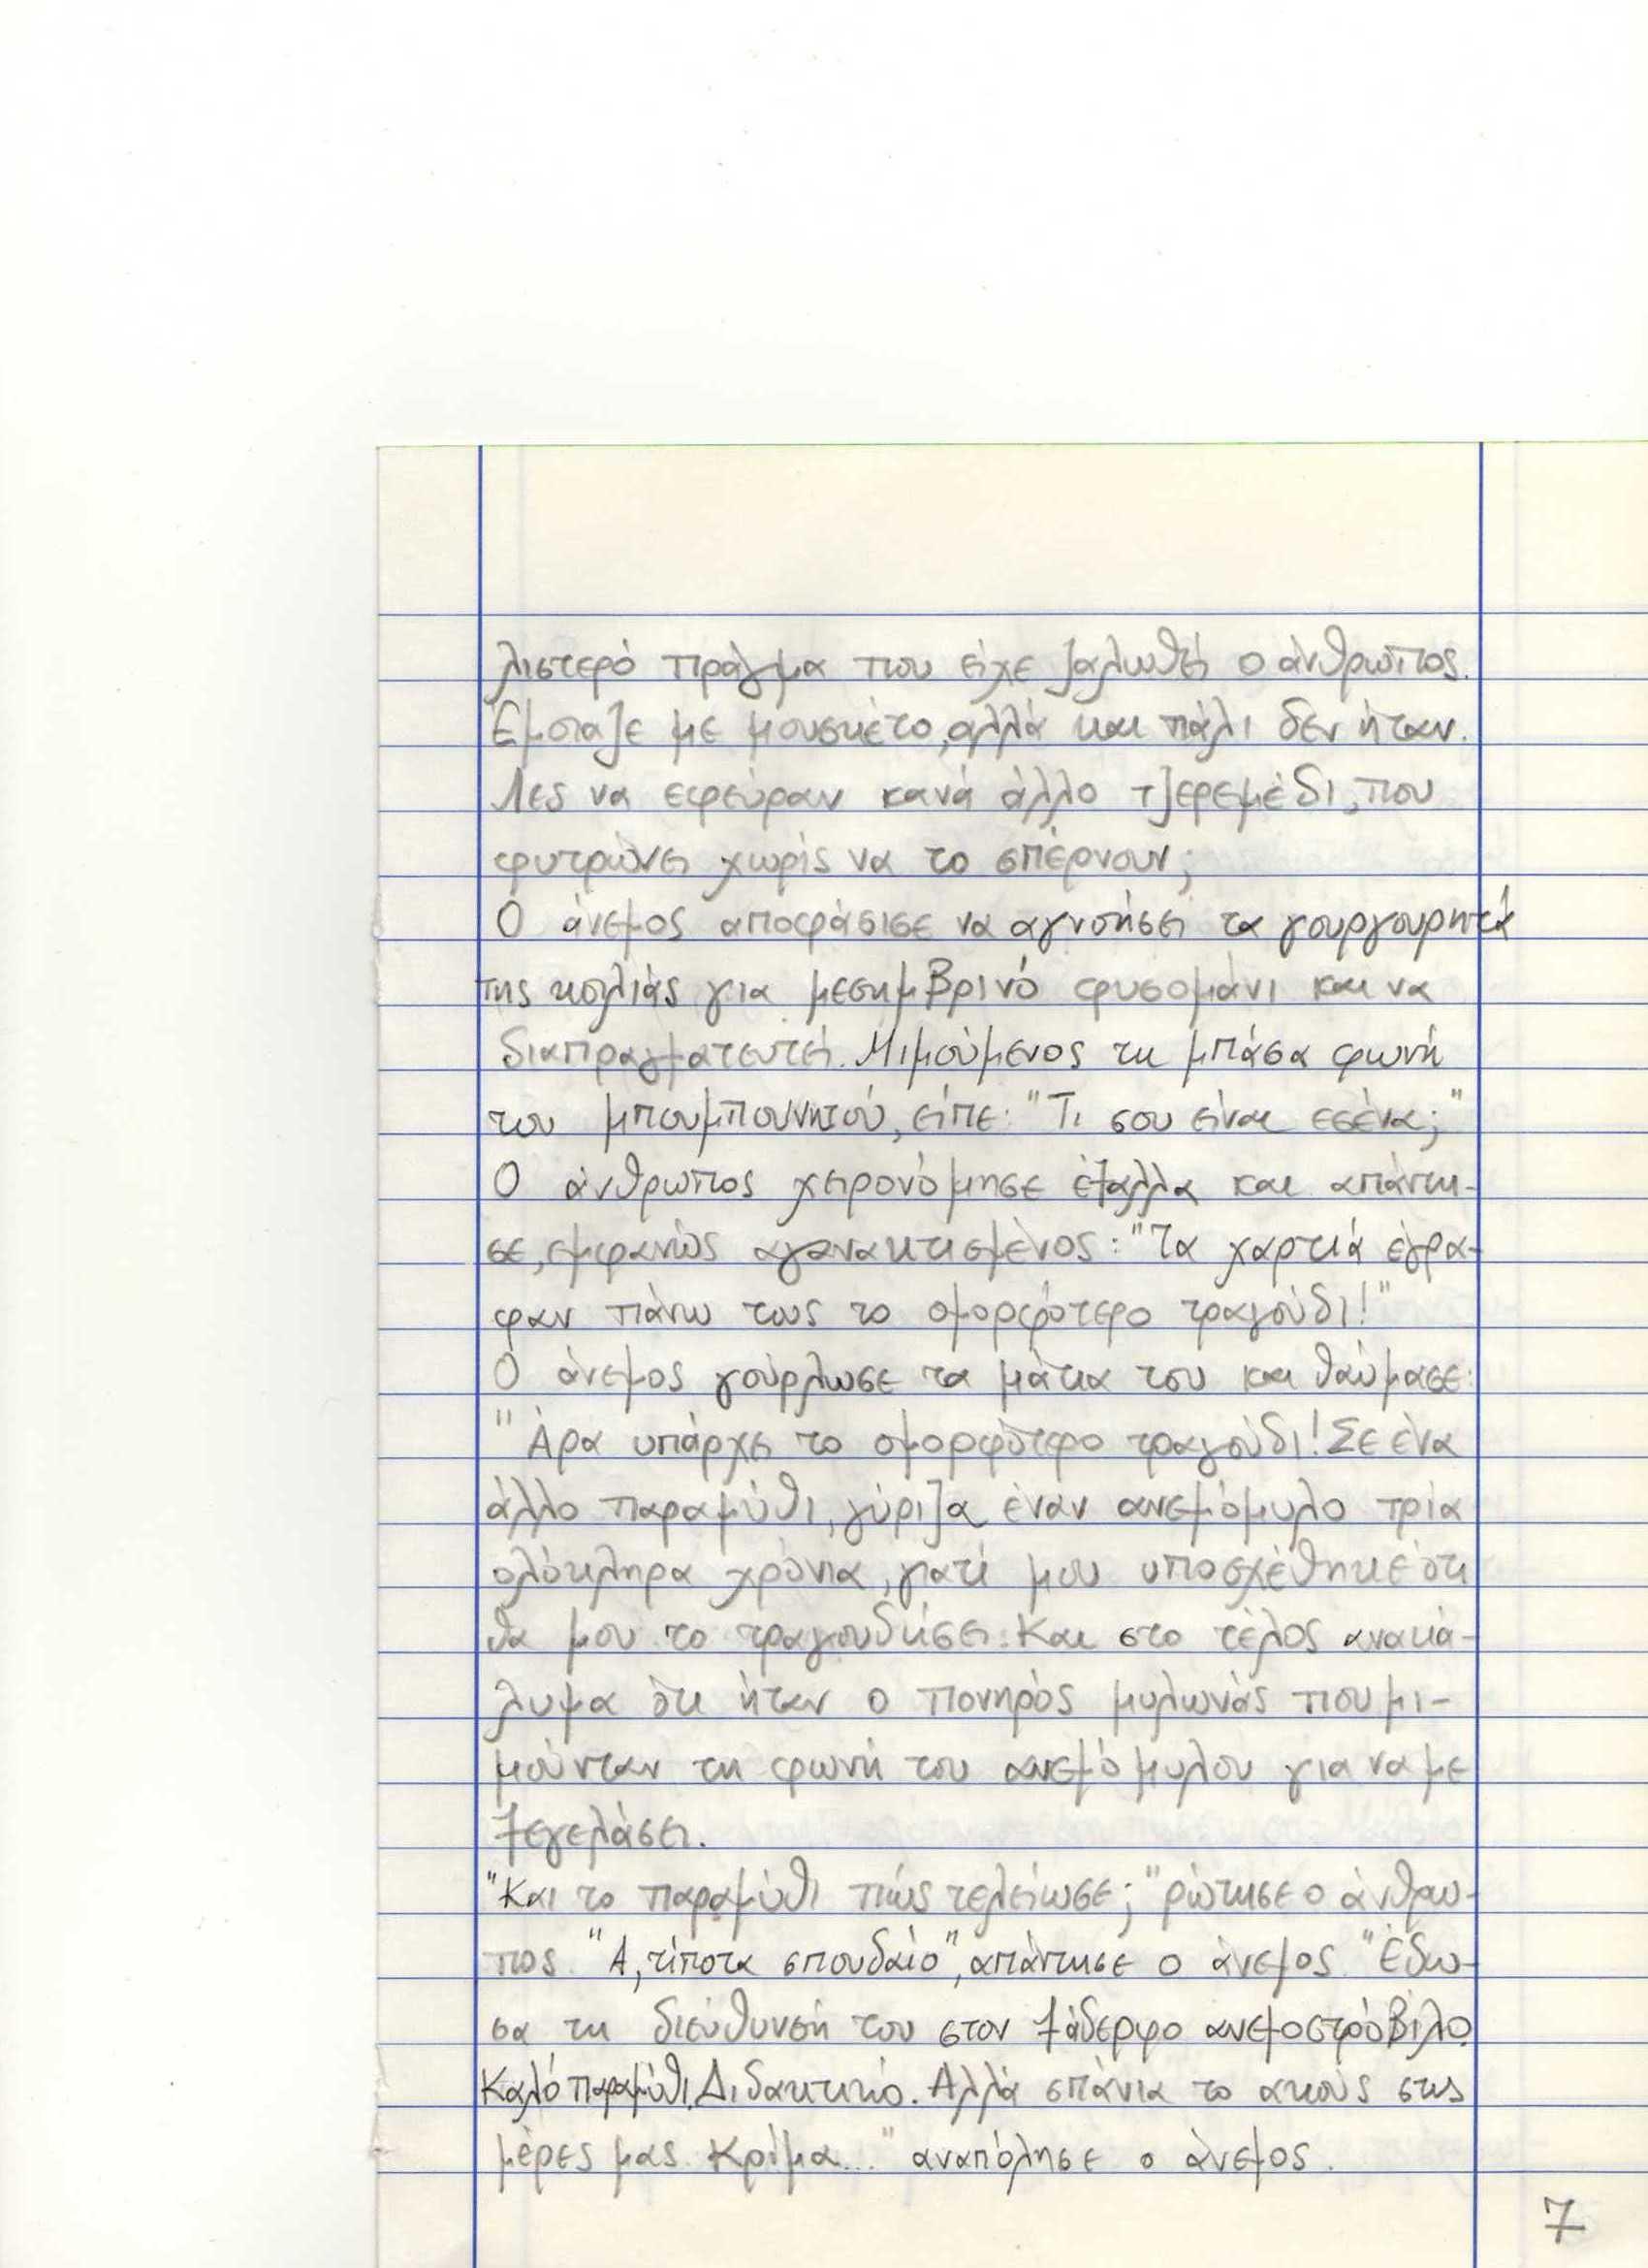 λιστερό πράγμα που είχε ζαλωθεί ο άνθρωπος.
Έμοιαζε με μουσκέτο, αλλά και πάλι δεν ήταν.
Λες να εφεύραν κανά άλλο τζερεμέδι, που
φυτρώνει χωρίς να το σπέρνουν;
Ο άνεμος αποφάσισε να αγνοήσει τα γουργουρητά
της κοιλιάς για μεσημβρινό φυσομάνι και να
διαπραγματευτεί. Μιμούμενος τη μπάσα φωνή
του μπουμπουνητού, είπε: "Τι σου είναι εσένα;"
Ο άνθρωπος χειρονόμησε έξαλλα και απάντη-
σε, εμφανώς αγανακτισμένος: "Τα χαρτιά έγρα-
φαν πάνω τους το ομορφότερο τραγούδι!"
Ο άνεμος γούρλωσε τα μάτια του και θαύμασε:
"Άρα υπάρχει το ομορφότερο τραγούδι! Σε ένα
άλλο παραμύθι, γύριζα έναν ανεμόμυλο τρία
ολόκληρα χρόνια, γιατί μου υποσχέθηκε ότι
θα μου το τραγουδήσει. Και στο τέλος ανακά-
λυψα ότι ήταν ο πονηρός μυλωνάς που μι-
μούνταν τη φωνή του ανεμόμυλου για να με
ξεγελάσει.
"Και το παραμύθι πώς τελείωσε;" ρώτησε ο άνθρω-
πος. "Α, τίποτα σπουδαίο", απάντησε ο άνεμος. "Έδω-
σα τη διεύθυνσή του στον ξάδερφο ανεμοστρόβιλο.
Καλό παραμύθι. Διδακτικό. Αλλά σπάνια το ακούς στις
μέρες μας. Κρίμα..." αναπόλησε ο άνεμος.
7